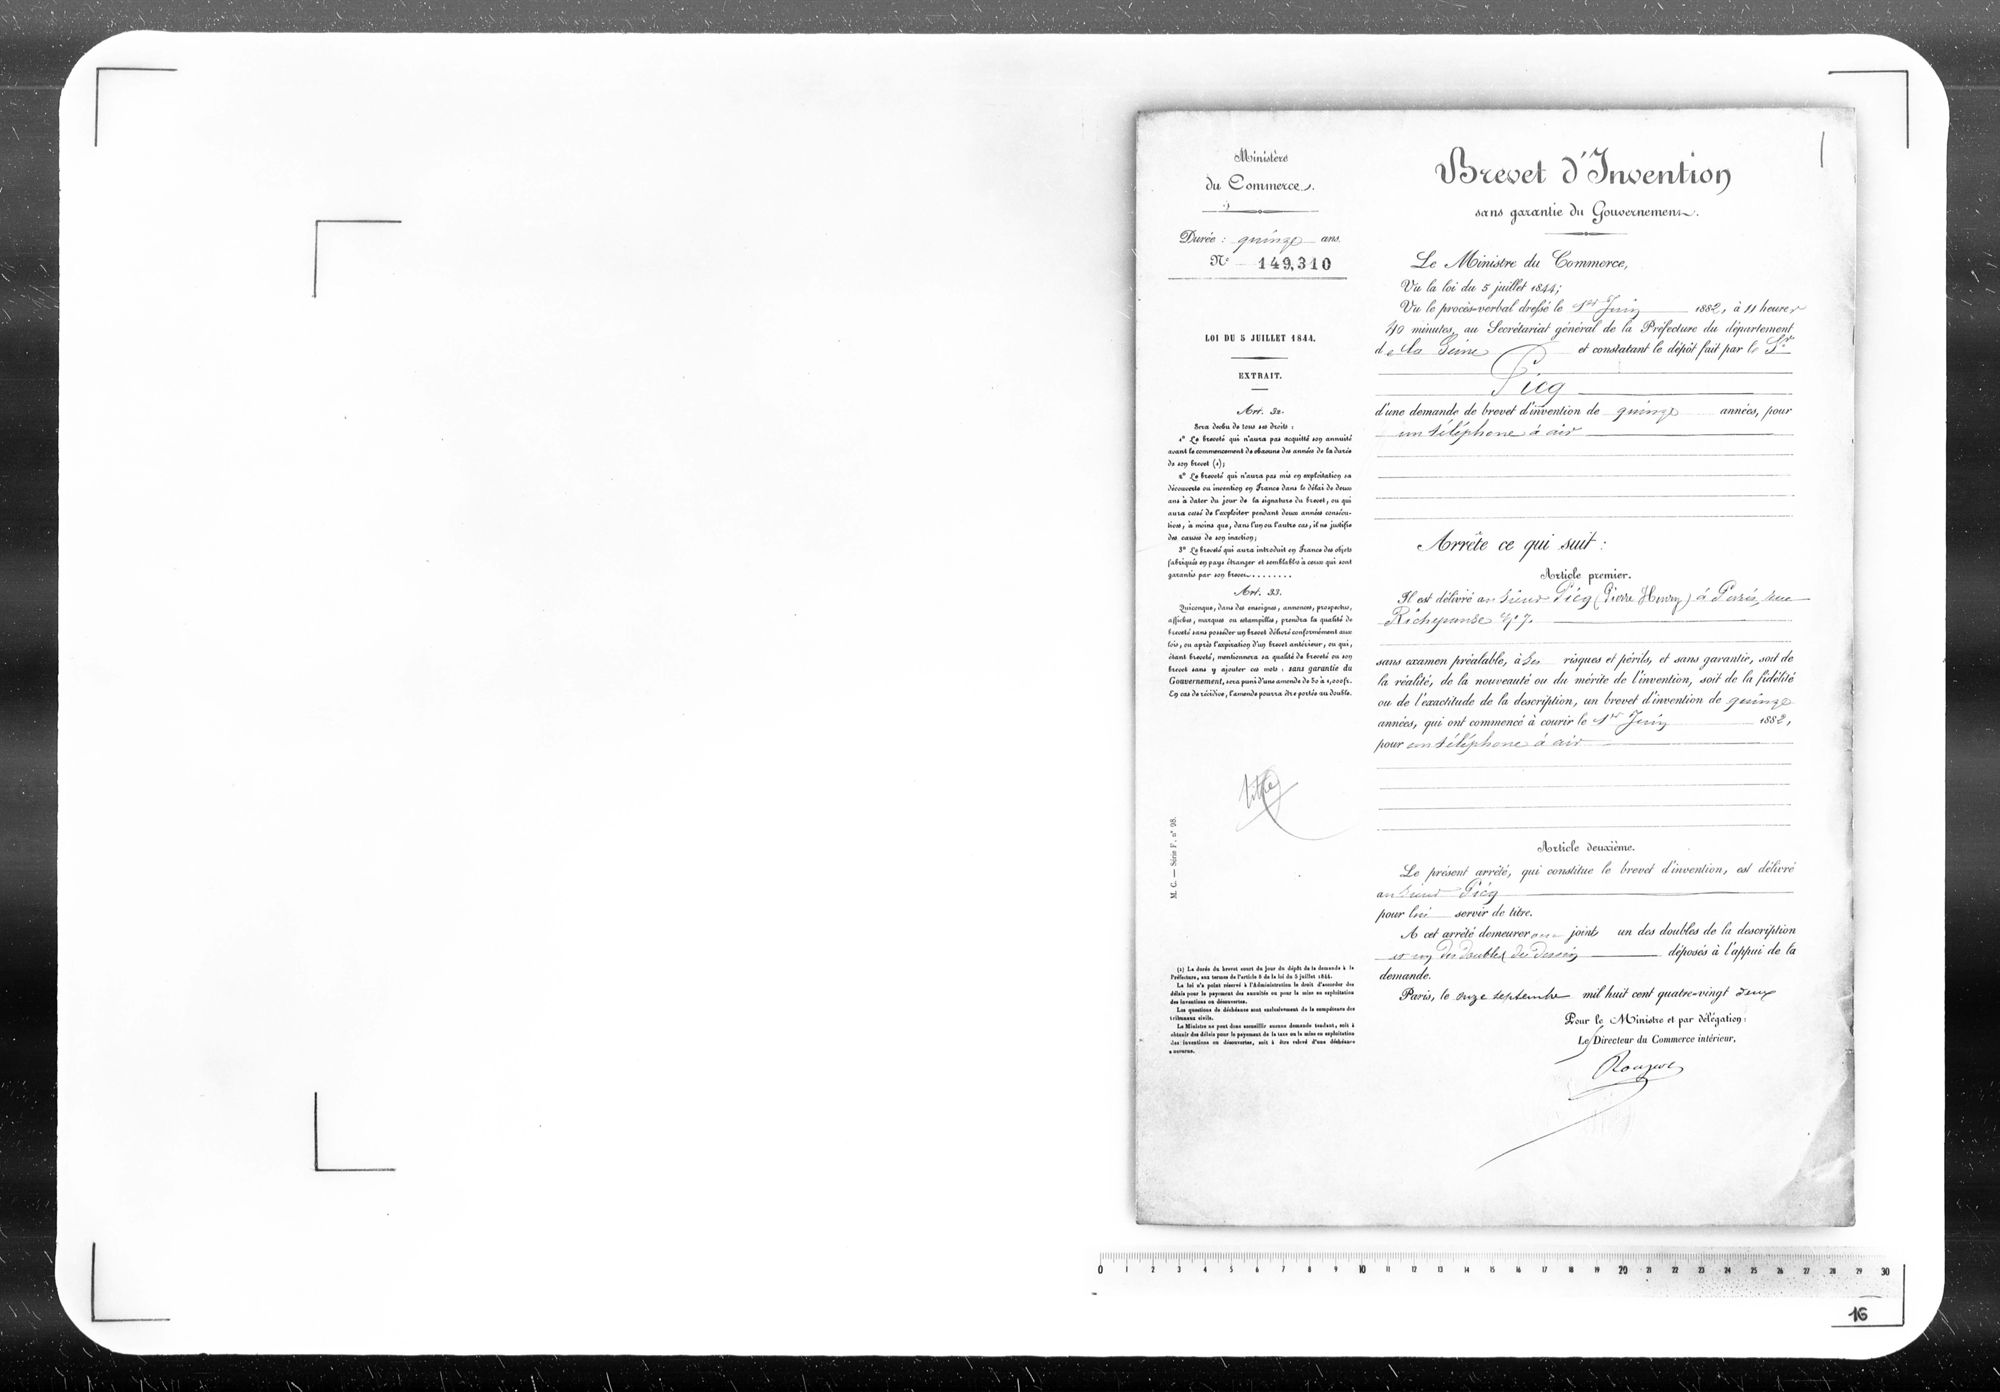 Ministère
du Commerce.
Durée : quinze ans.
N° 149,310
LOI DU 5 JUILLET 1844.
EXTRAIT.
Art. 32.
Sera déchu de tous ses droits :
1° Le breveté qui n'aura pas acquitté son annuité
avant le commencement de chacune des années de la durée
de son brevet (1);
2° Le breveté qui n'aura pas mis en exploitation sa
découverte ou invention en France dans le délai de deux
ans à dater du jour de la signature du brevet, ou qui
aura cessé de l'exploiter pendant deux années consécu-
tives, à moins que, dans l'un ou l'autre cas, il ne justifie
des causes de son inaction;
3° Le breveté qui aura introduit en France des objets
fabriqués en pays étranger et semblables à ceux qui sont
garantis par son brevet........
Art. 33.
Quiconque, dans des enseignes, annonces, prospectus,
affiches, marques ou estampilles, prendra la qualité de
breveté sans posséder un brevet délivré conformément aux
lois, ou après l'expiration d'un brevet antérieur, ou qui,
étant breveté, mentionnera sa qualité de breveté ou son
brevet sans y ajouter ces mots : sans garantie du
Gouvernement, sera puni d'une amende de 50 à 1,000 fr.
En cas de récidive, l'amende pourra être portée au double.
M. C. — Série F. n° 98.
(1) La durée du brevet court du jour du dépôt de la demande à la
Préfecture, aux termes de l'article 8 de la loi du 5 juillet 1844.
La loi n'a point réservé à l'Administration le droit d'accorder des
délais pour le payement des annuités ou pour la mise en exploitation
des inventions ou découvertes.
Les questions de déchéance sont exclusivement de la compétence des
tribunaux civils.
Le Ministre ne peut donc accueillir aucune demande tendant, soit à
obtenir des délais pour le payement de la taxe ou la mise en exploitation
des inventions ou découvertes, soit à être relevé d'une déchéance
encourue.
Brevet d'Invention
sans garantie du Gouvernement.
Le Ministre du Commerce,
Vu la loi du 5 juillet 1844;
Vu le procès-verbal dressé le 1er Juin 1882, à 11 heures
40 minutes, au Secrétariat général de la Préfecture du département
de la Seine et constatant le dépôt fait par le Sr
Picq
d'une demande de brevet d'invention de quinze années, pour
un téléphone à air
Arrête ce qui suit :
Article premier.
Il est délivré au Sieur Picq (Pierre Henry) à Paris, rue
Richepanse N° 7.
sans examen préalable, à ses risques et périls, et sans garantie, soit de
la réalité, de la nouveauté ou du mérite de l'invention, soit de la fidélité
ou de l'exactitude de la description, un brevet d'invention de quinze
années, qui ont commencé à courir le 1er Juin 1882,
pour un téléphone à air
Article deuxième.
Le présent arrêté, qui constitue le brevet d'invention, est délivré
au Sieur Picq
pour lui servir de titre.
A cet arrêté demeurer joint un des doubles de la description
et un des doubles du dessin déposés à l'appui de la
demande.
Paris, le onze septembre mil huit cent quatre-vingt deux
Pour le Ministre et par délégation :
Le Directeur du Commerce intérieur,
0 1 2 3 4 5 6 7 8 9 10 11 12 13 14 15 16 17 18 19 20 21 22 23 24 25 26 27 28 29 30
16